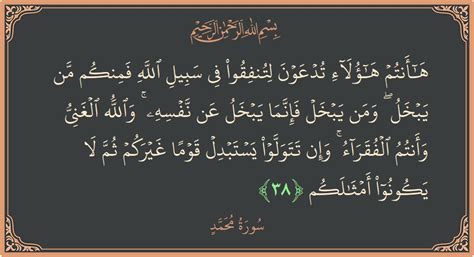 بِسْمِ اللَّهِ الرَّحْمَٰنِ الرَّحِيمِ
هَٰٓأَنتُمْ هَٰٓؤُلَآءِ تُدْعَوْنَ لِتُنفِقُوا۟ فِى سَبِيلِ ٱللَّهِ فَمِنكُم مَّن
يَبْخَلُ ۖ وَمَن يَبْخَلْ فَإِنَّمَا يَبْخَلُ عَن نَّفْسِهِۦ ۚ وَٱللَّهُ ٱلْغَنِىُّ
وَأَنتُمُ ٱلْفُقَرَآءُ ۚ وَإِن تَتَوَلَّوْا۟ يَسْتَبْدِلْ قَوْمًا غَيْرَكُمْ ثُمَّ لَا
يَكُونُوٓا۟ أَمْثَٰلَكُم ﴿٣٨﴾
سُورَةُ مُحَمَّدٍ